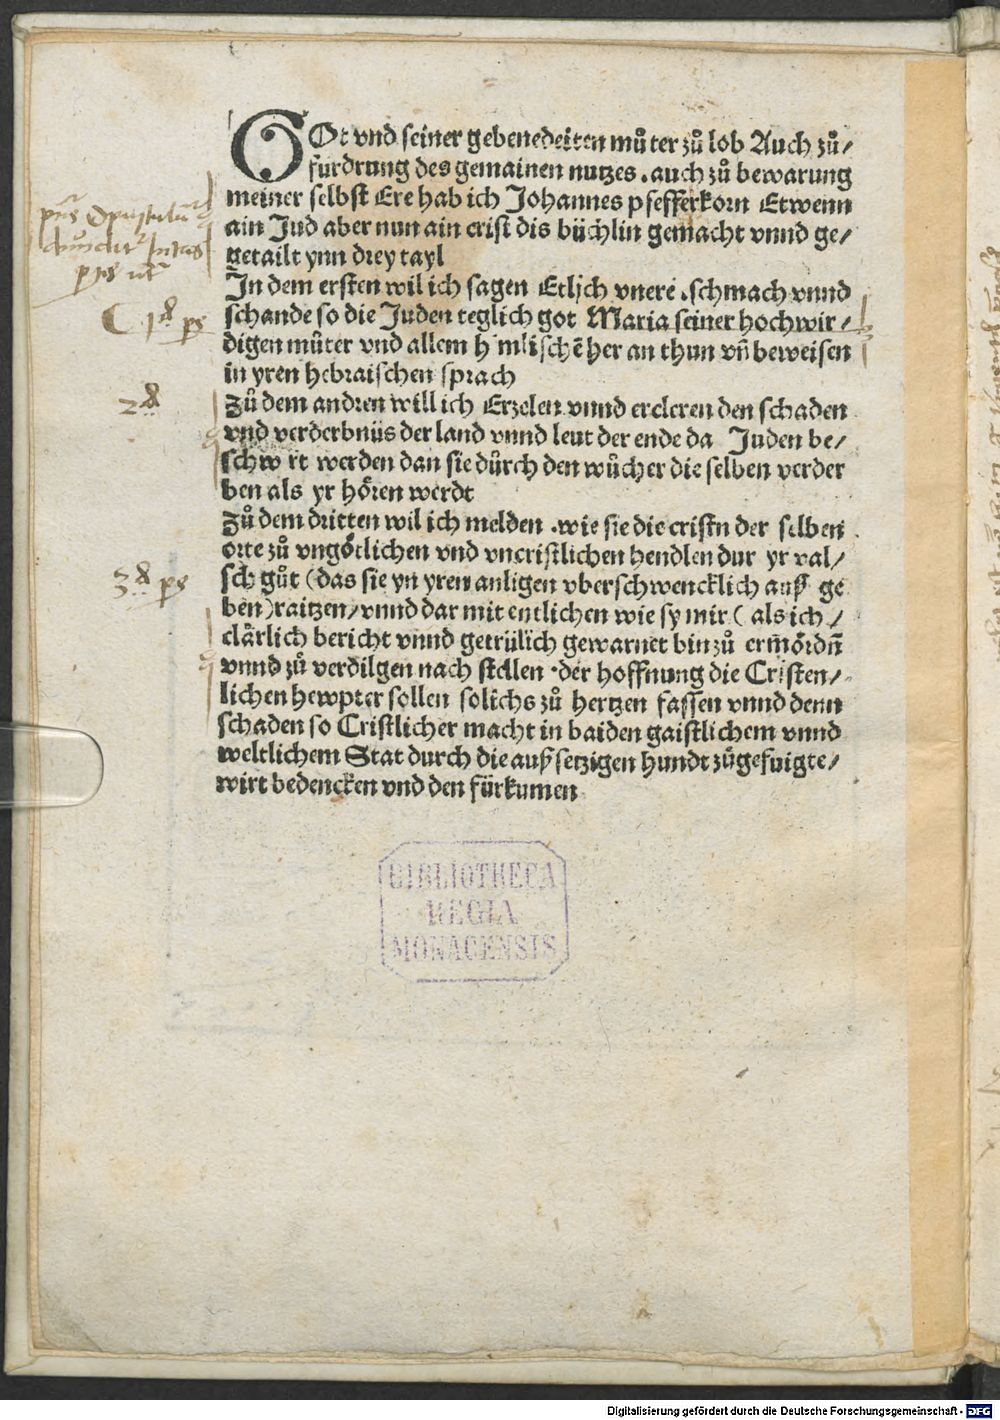 GOt vnd seiner gebenedeiten můter zů lob Auch zů/
furdrung des gemainen nutzes .auch zů bewarung
meiner selbst Ere hab ich Johannes pfefferkorn Etwenn
ain Jud aber nun ain crist dis büchlin gemacht vnnd ge/
getailt ynn drey tayl
In dem ersten wil ich sagen Etlich vnere .schmach vnnd
schande so die Juden teglich got Maria seiner hochwir/
digen můter vnd allem himlischē her an thun vñ beweisen
in yren hebraischen sprach
Zů dem andren will ich Erzelen vnnd ercleren den schaden
vnd verderbnüs der land vnnd leut der ende da Juden be/
schwert werden dan sie důrch den wůcher die selben verder
ben als yr hören werdt
Zů dem dritten wil ich melden .wie sie die cristn der selben
orte zů vngötlichen vnd vncristlichen hendlen dur yr val/
sch gůt (das sie yn yren anligen vberschwencklich auß ge
ben) raitzen/vnnd dar mit entlichen wie sy mir ( als ich /
clärlich bericht vnnd getrülich gewarnet bin zů ermördñ
vnnd zů verdilgen nach stellen .der hoffnung die Cristen/
lichen hewpter sollen solichs zů hertzen fassen vnnd denn
schaden so Cristlicher macht in baiden gaistlichem vnnd
weltlichem Stat durch die außsetzigen hundt zůgefuigte/
wirt bedencken vnd den fürkumen
1ª ps
2ª
3ª ps
BIBLIOTHECA
REGIA
MONACENSIS
Digitalisierung gefördert durch die Deutsche Forschungsgemeinschaft - DFG